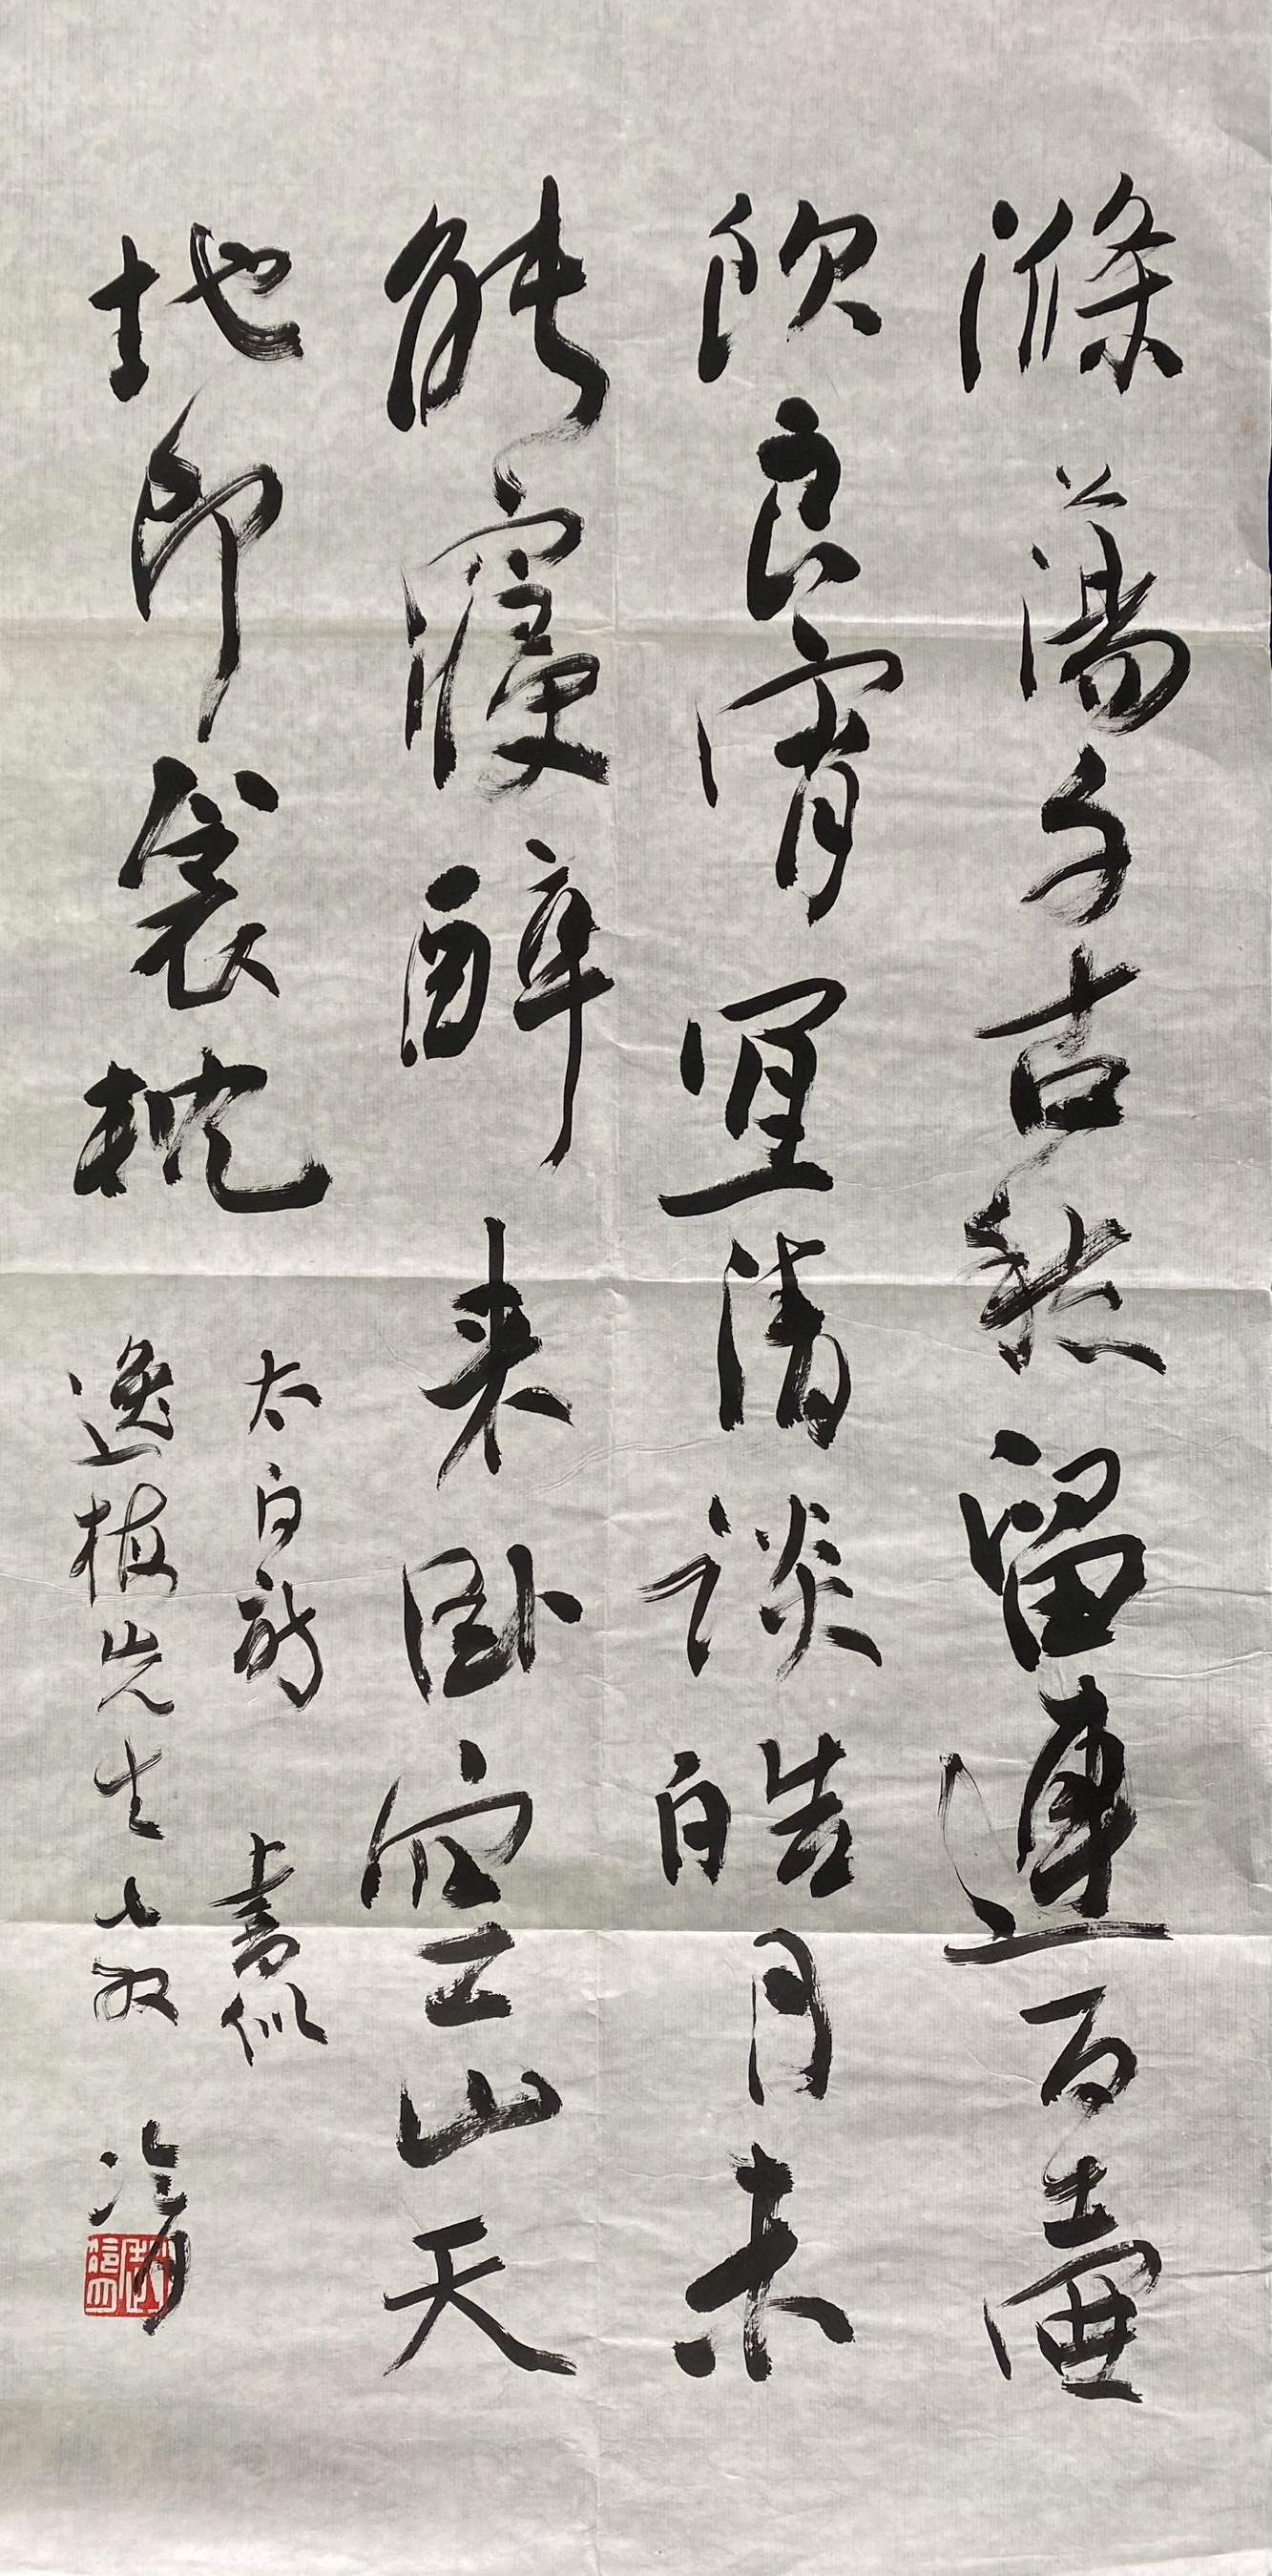 滌蕩千古愁留連百壺
飲良宵宜清談皓月未
能寢醉来卧空山天
地即衾枕
太白詩 書似
逸梅先生教